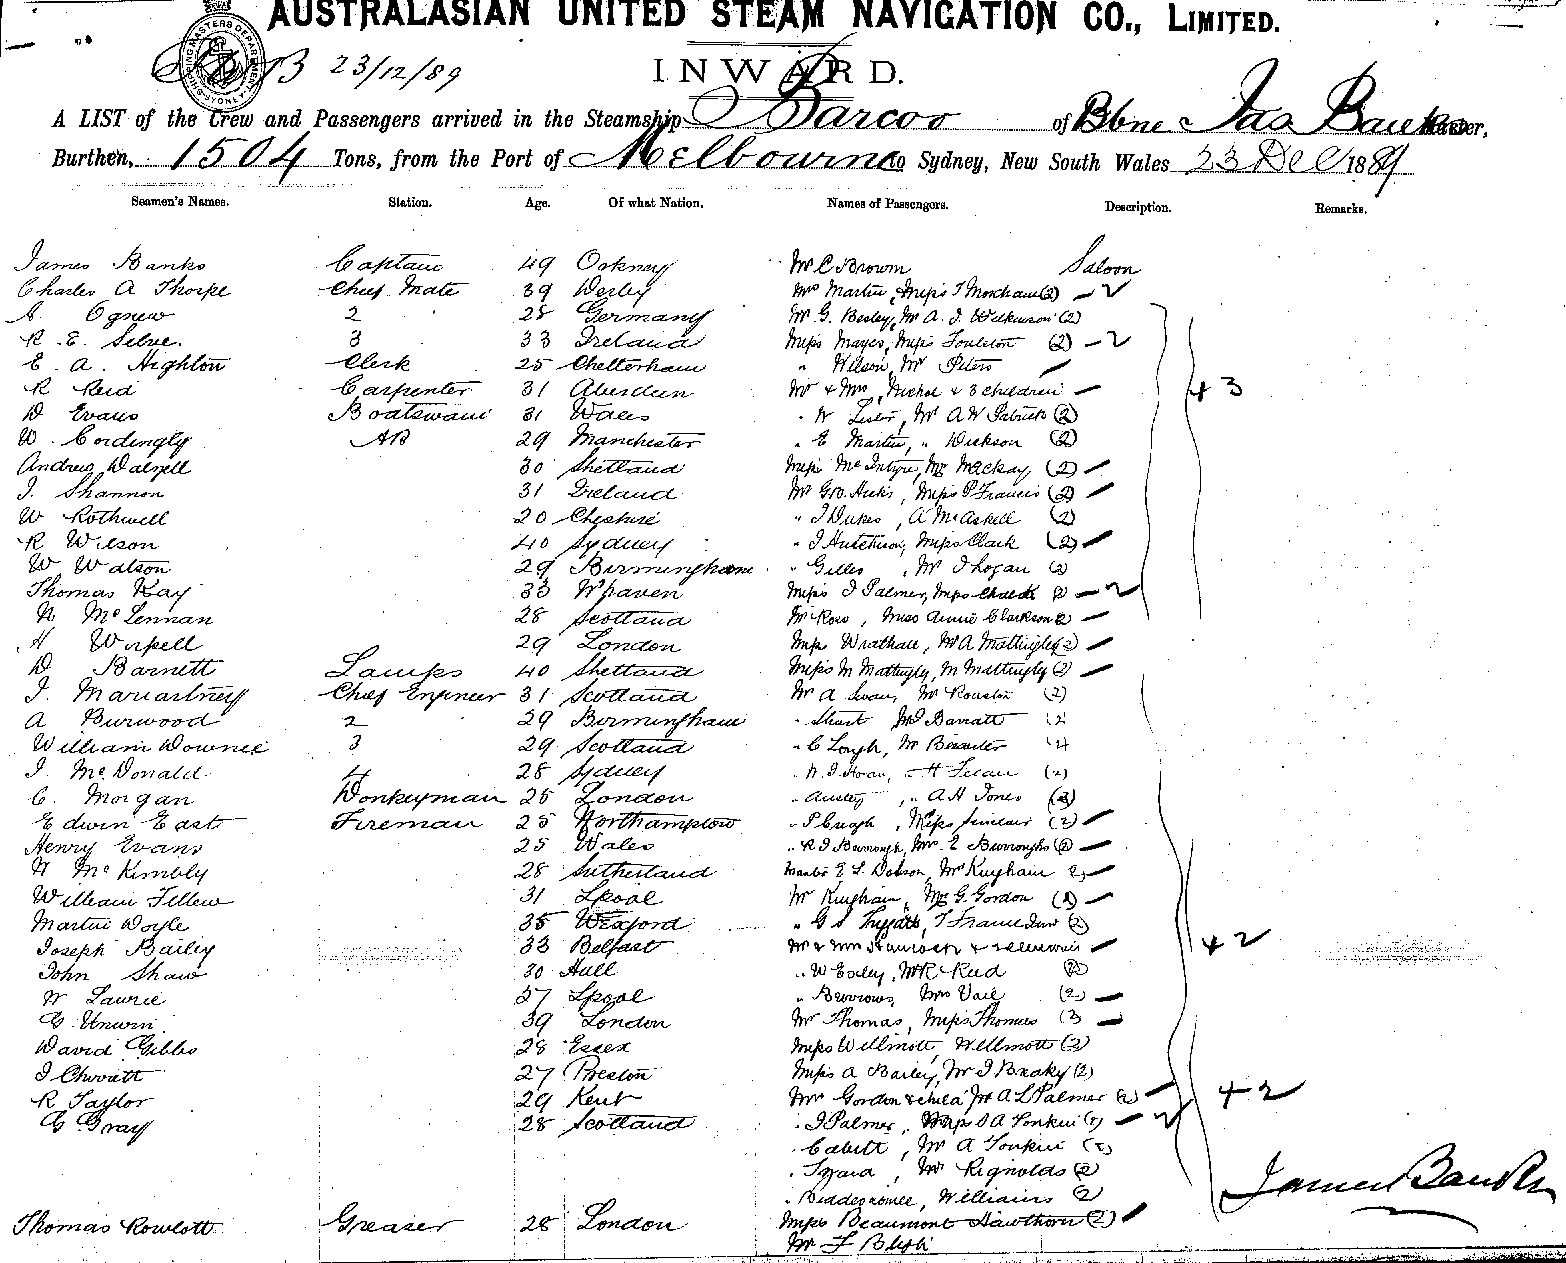 AUSTRALASIAN UNITED STEAM NAVIGATION CO., LIMITED.
23/12/89 INWARD.
SHIPPING MASTERS DEPARTMENT SYDNEY
A LIST of the Crew and Passengers arrived in the Steamship Barcoo of Bbne Jas Banks Master,
Burthen, 1504 Tons, from the Port of Melbourne to Sydney, New South Wales 23 Dec 1889
Seamen's Names. Station. Age. Of what Nation. Names of Passengers. Description. Remarks.
James Banks Captain 49 Orkney Mr C Brown Saloon
Charles A Thorpe Chief Mate 39 Derby Mrs Martin, Miss T Morcham (2)
Agnew 2 28 Germany Mr G. Besley, Mr A. J. Wilkinson (2)
R. E. Selve. 3 33 Ireland Miss Mayes, Miss Foulston (2)
E. A. Highton Clerk 25 Cheltenham " Wilson, Mr Peters
R Reid Carpenter 31 Aberdeen Mr & Mrs Nichol & 3 children 43
D Evans Boatswain 31 Wales " Lister, Mr A W (2)
W. Cordingly AB 29 Manchester " E Martin, " Dickson (2)
Andrew Dalzell 30 Shetland Miss McIntyre, Mr Mackay (2)
J. Shannon 31 Ireland Mr Geo. Hicks, Miss P Francis (2)
W Rothwell 20 Cheshire " J Dukes, A McAskell (2)
R Wilson 40 Sydney " J Hutchison, Miss Clark (2)
W Watson 29 Birmingham " Gilles, Mr J Logan (2)
Thomas Kay 33 W'haven Miss J Palmer, Miss (2)
N McLennan 28 Scotland Mr Ross, Miss Annie Clarkson 2
H 29 London Miss Wrathall, Mr A Mattingley (2)
D Barnett Lamps 40 Shetland Miss M Mattingley, M Mattingley (2)
J. Chief Engineer 31 Scotland Mr A Swan, Mr Rouston (2)
A Burwood 2 29 Birmingham " Short Mr J Barratt (2
William Downie 3 29 Scotland " C Lough, Mr
J. McDonald 4 28 Sydney (2)
C. Morgan Donkeyman 25 London " Ansley, " A H Jones (2)
Edwin East Fireman 25 Northampton " P Creagh, Miss Sinclair (2)
Henry Evans 25 Wales " R J Burrough, Mrs E Burroughs (2)
N McKimbly 28 Sutherland Master E L Dobson, Mr Kingham 2
William Fellow 31 Lpool Mr Kingham, Mr G. Gordon
Martin Doyle 35 Wexford " G S (2)
Joseph Bailey 33 Belfast Mr & Mrs 42
John Shaw 30 Hull " W Exley, Mr R Reid (2)
W Lawrie 27 Lpool " Burrows, Mrs Vail (2)
G Unwin 39 London Mr Thomas, Miss Thomas (3
David Gibbs 28 Essex Miss Willmott, Willmott (2)
J 27 Preston Miss A Bailey, Mr J Beaky (2)
R Taylor 29 Kent Mr Gordon & child Mr A L Palmer (2) 42
G Gray 28 Scotland " J Palmer, Miss S A Tonkin
Mr A Tonkin
Mr Rignolds (2)
Williams (2)
James Banks
Thomas Rowlott Greaser 28 London Miss Beaumont Hawthorn (2)
Mr F Bligh